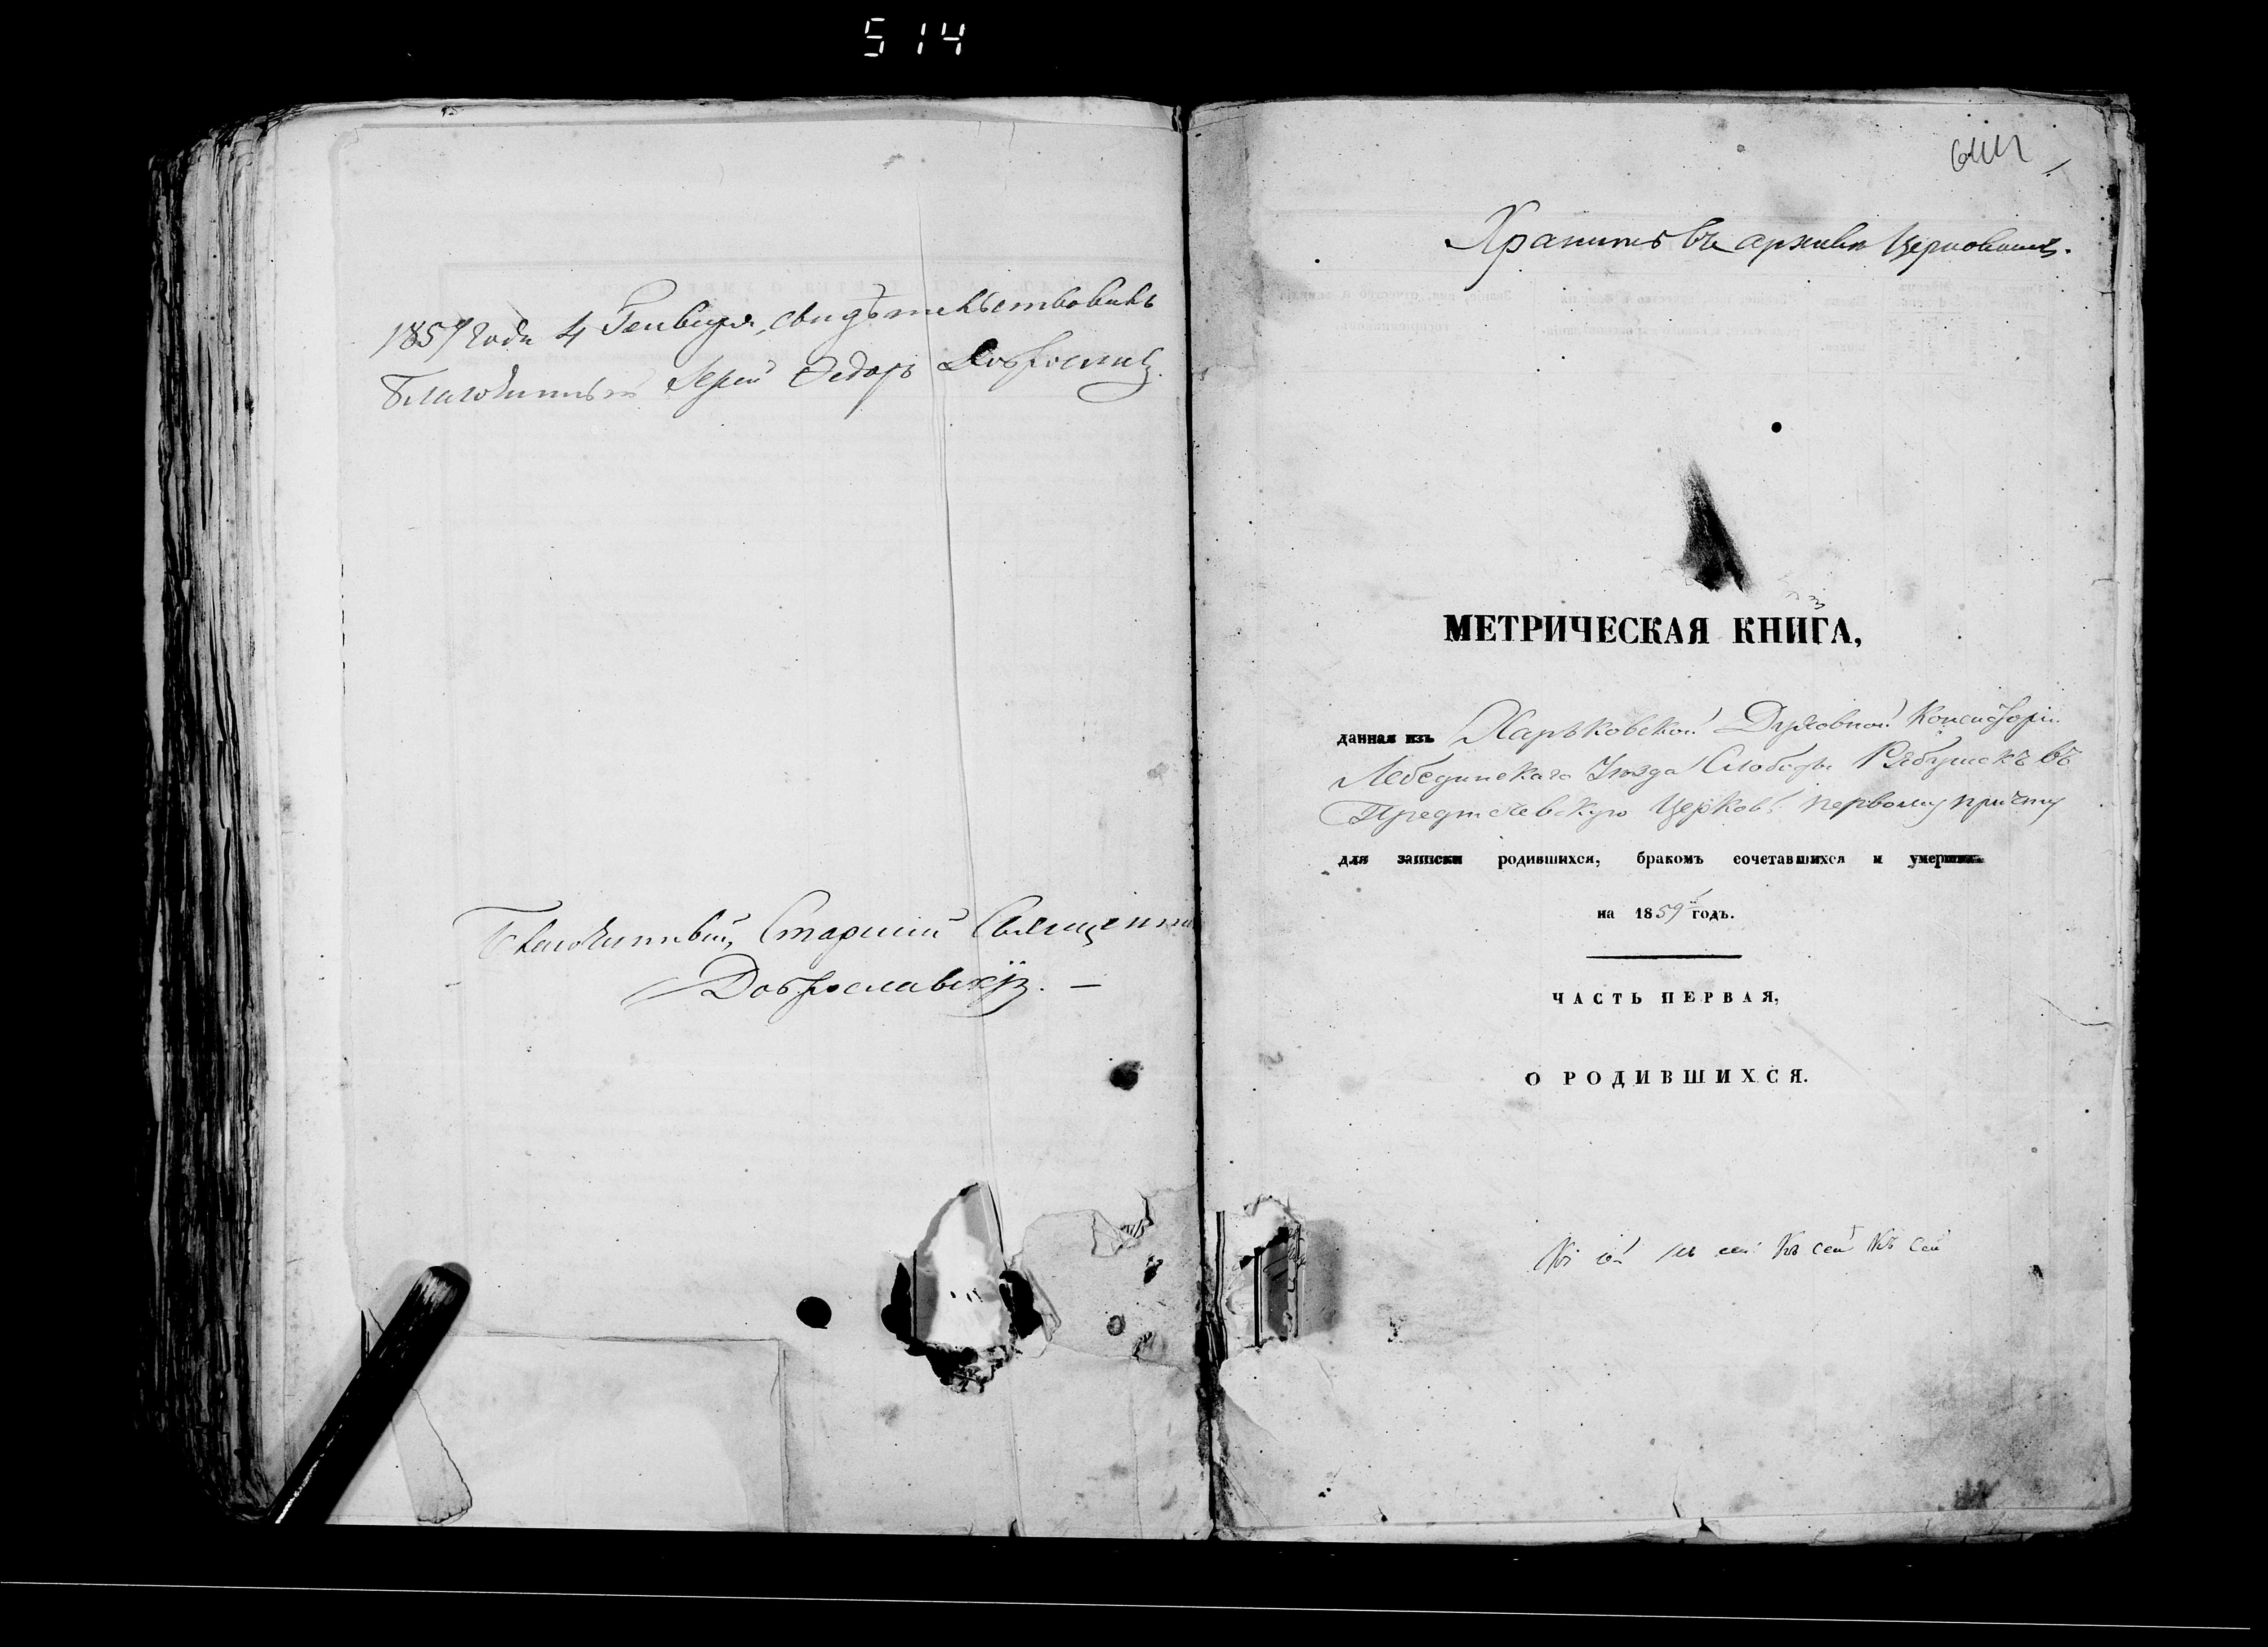 514
1859 года 4 Генваря, свидѣтельствовалъ
Благочинный Іерей Ѳедоръ
Благочинный, Старшій Священни
Доброславскій. —
Хранить въ архивѣ Церковномъ.
МЕТРИЧЕСКАЯ КНИГА,
данная изъ Харьковской Духовной Консисторіи
Лебединскаго Уѣзда Слободы Рябушекъ въ
Предтечевскую Церковь первому причту
для записки родившихся, бракомъ сочетавшихся и умершихъ
на 1859й годъ.
ЧАСТЬ ПЕРВАЯ,
О РОДИВШИХСЯ.
Къ сей Къ сей